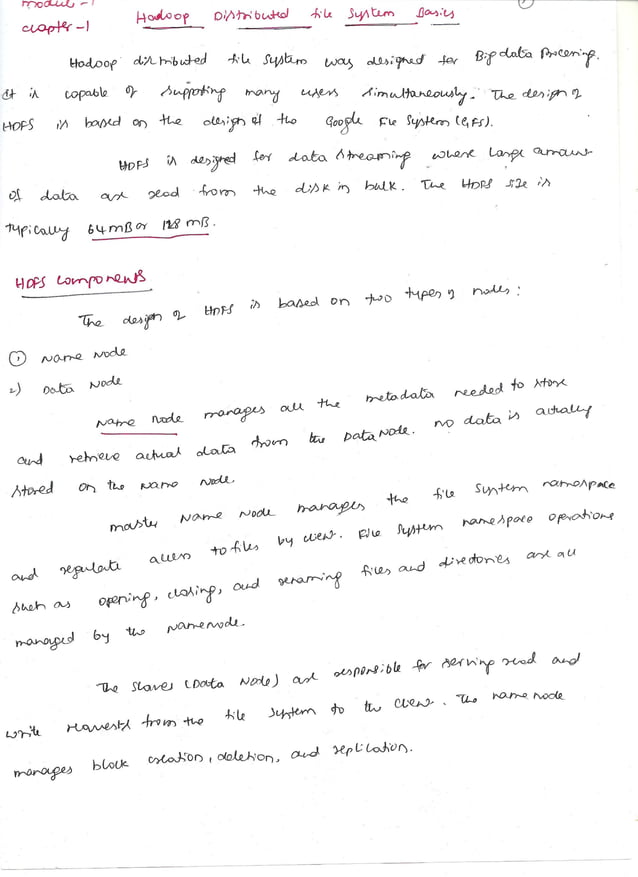 Module-1
Chapter-1
Hadoop Distributed file System Basics
Hadoop distributed file system was designed for Big data Processing.
It is capable of supporting many users simultaneously. The design of
HDFS is based on the design of the Google File System (GFS).
HDFS is designed for data streaming where large amount
of data are read from the disk in bulk. The HDFS size is
typically 64MB or 128 MB.
HDFS Components
The design of HDFS is based on two types of nodes:
① Name Node
2) Data Node
Name Node manages all the metadata needed to store
and retrieve actual data from the DataNode. No data is actually
stored on the Name Node.
Master Name Node manages the file system namespace
and regulate access to files by client. File system namespace operations
such as opening, closing, and renaming files and directories are all
managed by the Namenode.
The Slaves (Data Node) are responsible for serving read and
write requests from the file system to the client. The name node
manages block creation, deletion, and replication.